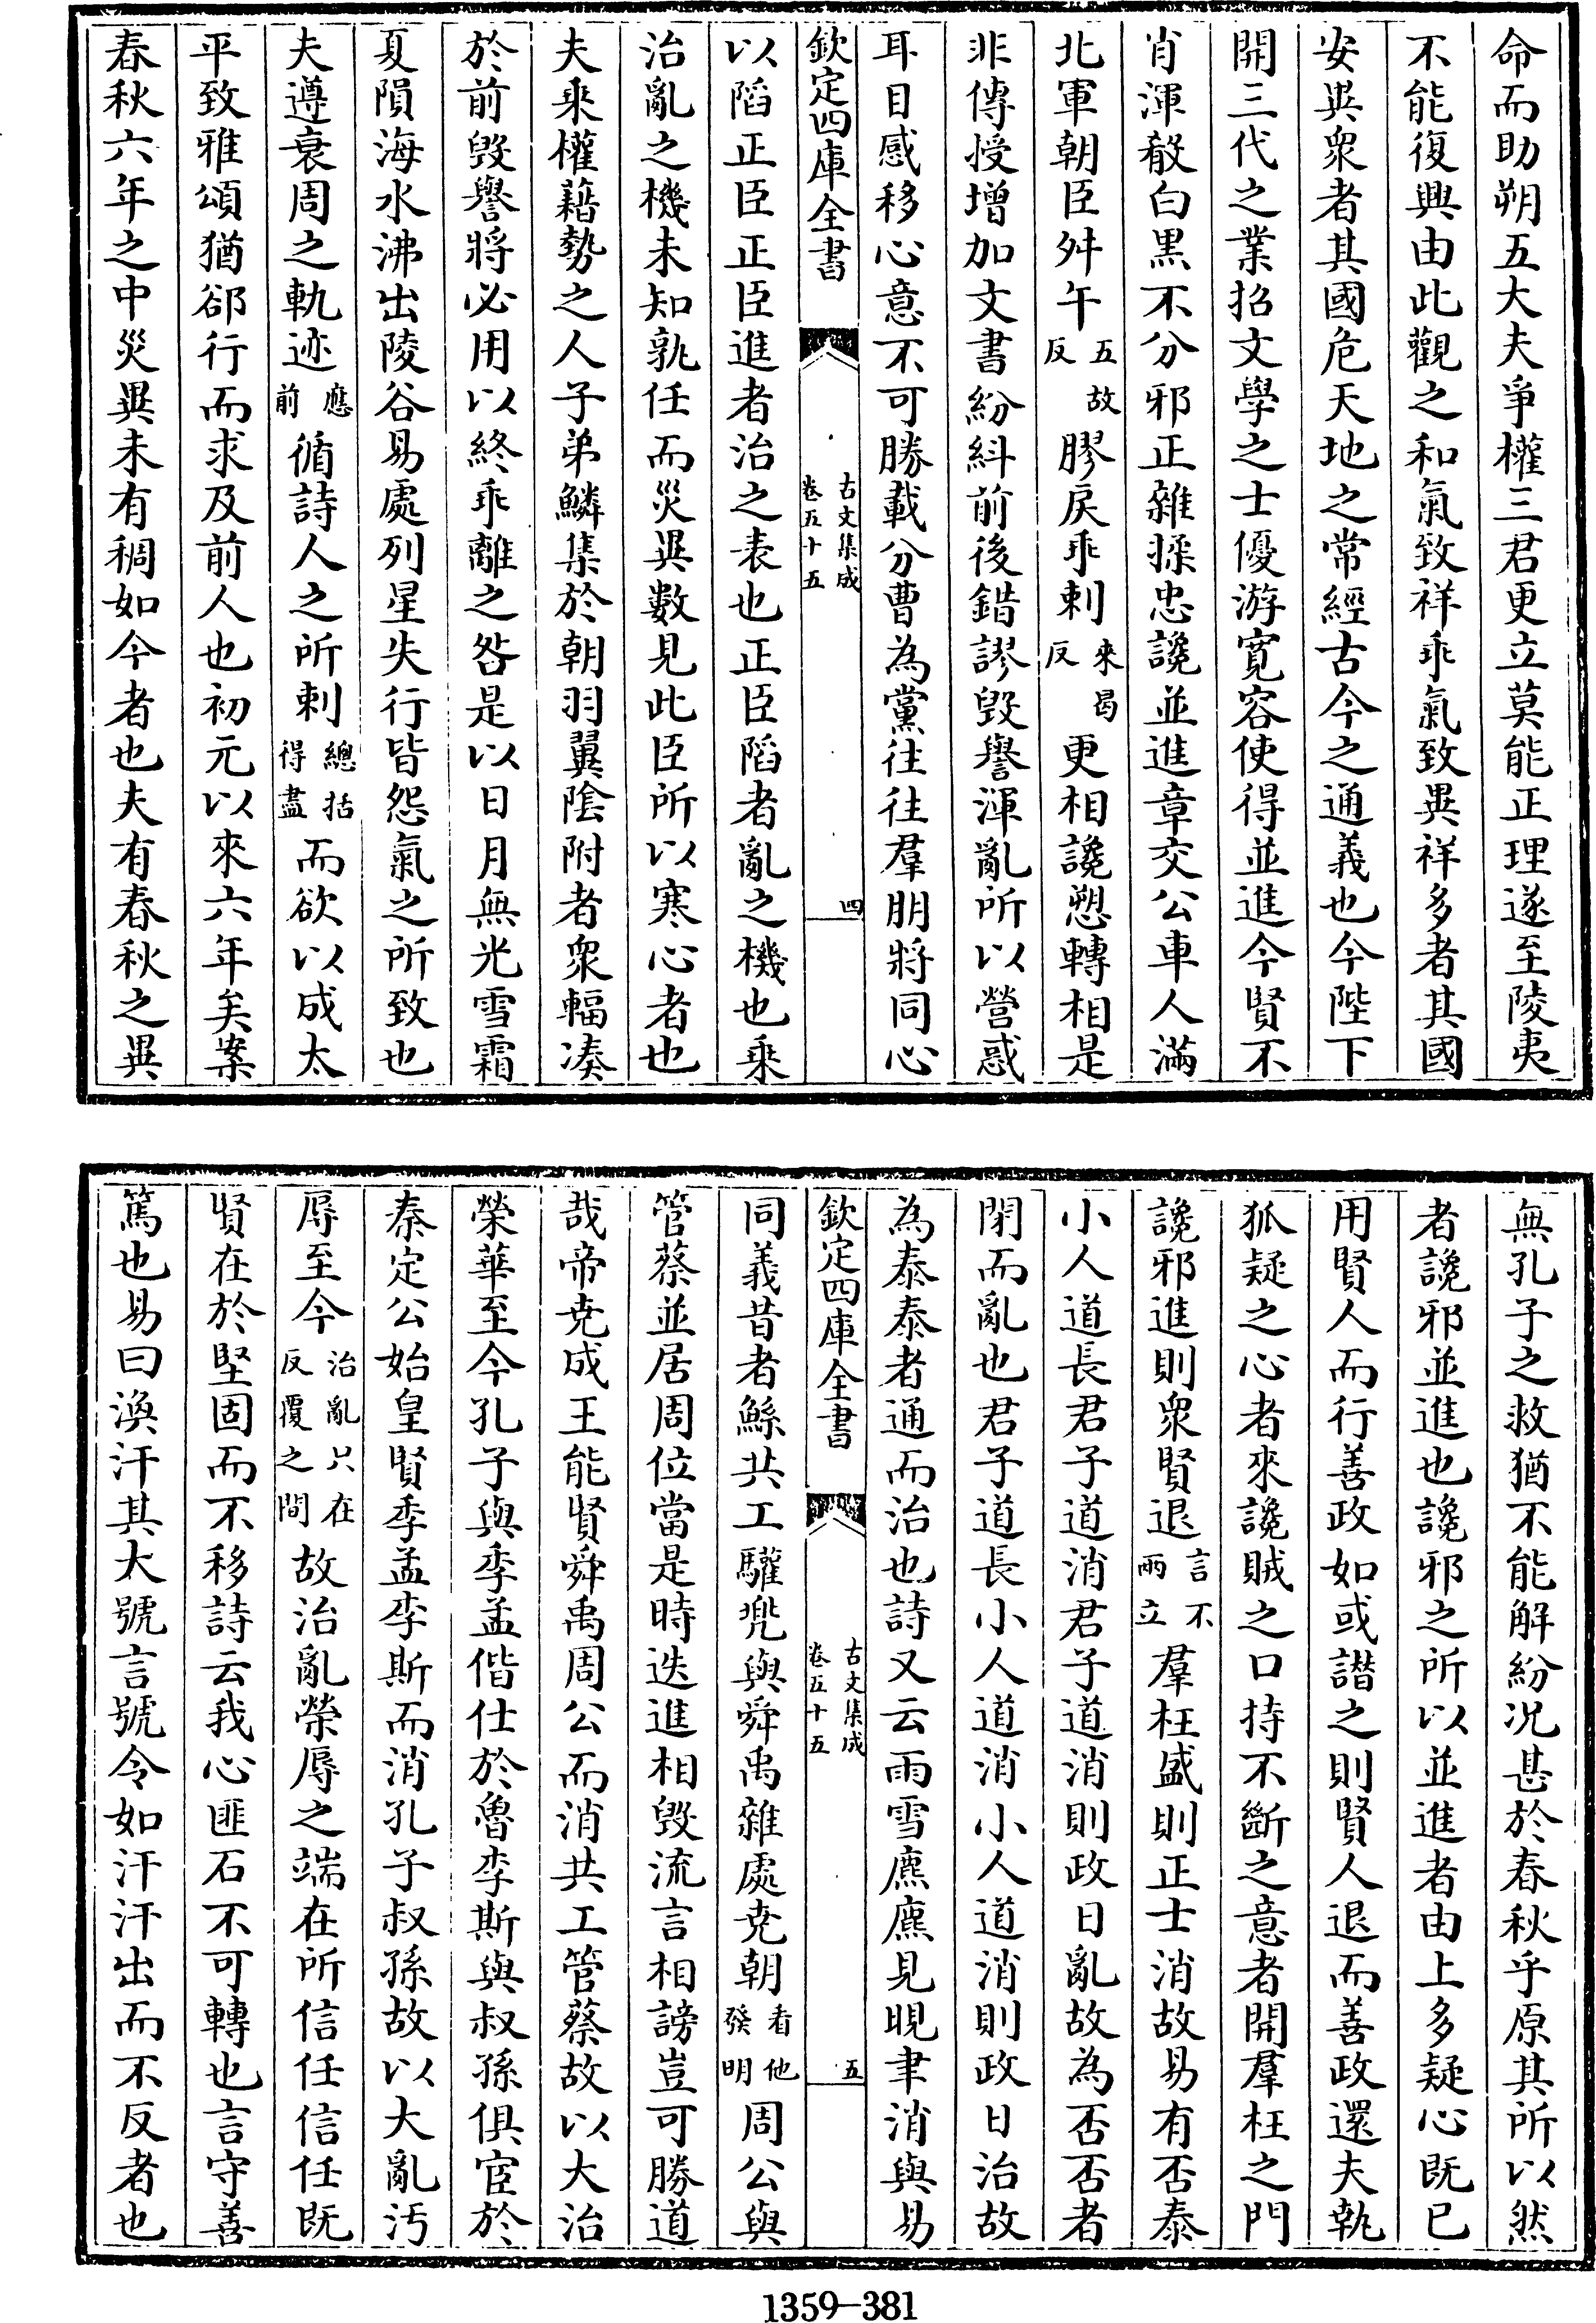 命而助朔五大夫爭權三君更立莫能正理遂至陵夷
不能復興由此觀之和氣致祥乖氣致異祥多者其國
安異衆者其國危天地之常經古今之通義也今陛下
開三代之業招文學之士優游寛容使得並進今賢不
肖渾殽白黒不分邪正雜揉忠讒並進章交公車人滿
北軍朝臣舛午五故反膠戾乖剌來曷反更相讒愬轉相是
非傳授增加文書紛糾前後錯謬毁譽渾亂所以營惑
耳目感移心意不可勝載分曹為黨往往羣朋將同心
欽定四庫全書 古文集成卷五十五 四
以䧟正臣正臣進者治之表也正臣䧟者亂之機也乘
治亂之機未知孰任而災異數見此臣所以寒心者也
夫乘權藉勢之人子弟鱗集於朝羽翼隂附者衆輻湊
於前毁譽將必用以終乖離之咎是以日月無光雪霜
夏隕海水沸出陵谷易處列星失行皆怨氣之所致也
夫遵衰周之軌迹應前循詩人之所刺總括得盡而欲以成太
平致雅頌猶郤行而求及前人也初元以來六年矣案
春秋六年之中災異未有稠如今者也夫有春秋之異
無孔子之救猶不能解紛况甚於春秋乎原其所以然
者讒邪並進也讒邪之所以並進者由上多疑心既已
用賢人而行善政如或譖之則賢人退而善政還夫執
狐疑之心者來讒賊之口持不斷之意者開羣枉之門
讒邪進則衆賢退言不兩立羣枉盛則正士消故易有否泰
小人道長君子道消君子道消則政日亂故為否否者
閉而亂也君子道長小人道消小人道消則政日治故
為泰泰者通而治也詩又云雨雪麃麃見晛聿消與易
欽定四庫全書 古文集成卷五十五 五
同義昔者鯀共工驩兠與舜禹雜處堯朝看他發明周公與
管蔡並居周位當是時迭進相毁流言相謗豈可勝道
哉帝堯成王能賢舜禹周公而消共工管蔡故以大治
榮華至今孔子與季孟偕仕於魯李斯與叔孫俱宦於
秦定公始皇賢季孟李斯而消孔子叔孫故以大亂汚
辱至今治亂只在反覆之間故治亂榮辱之端在所信任信任既
賢在於堅固而不移詩云我心匪石不可轉也言守善
篤也易曰渙汗其大號言號令如汗汗出而不反者也
1359—381